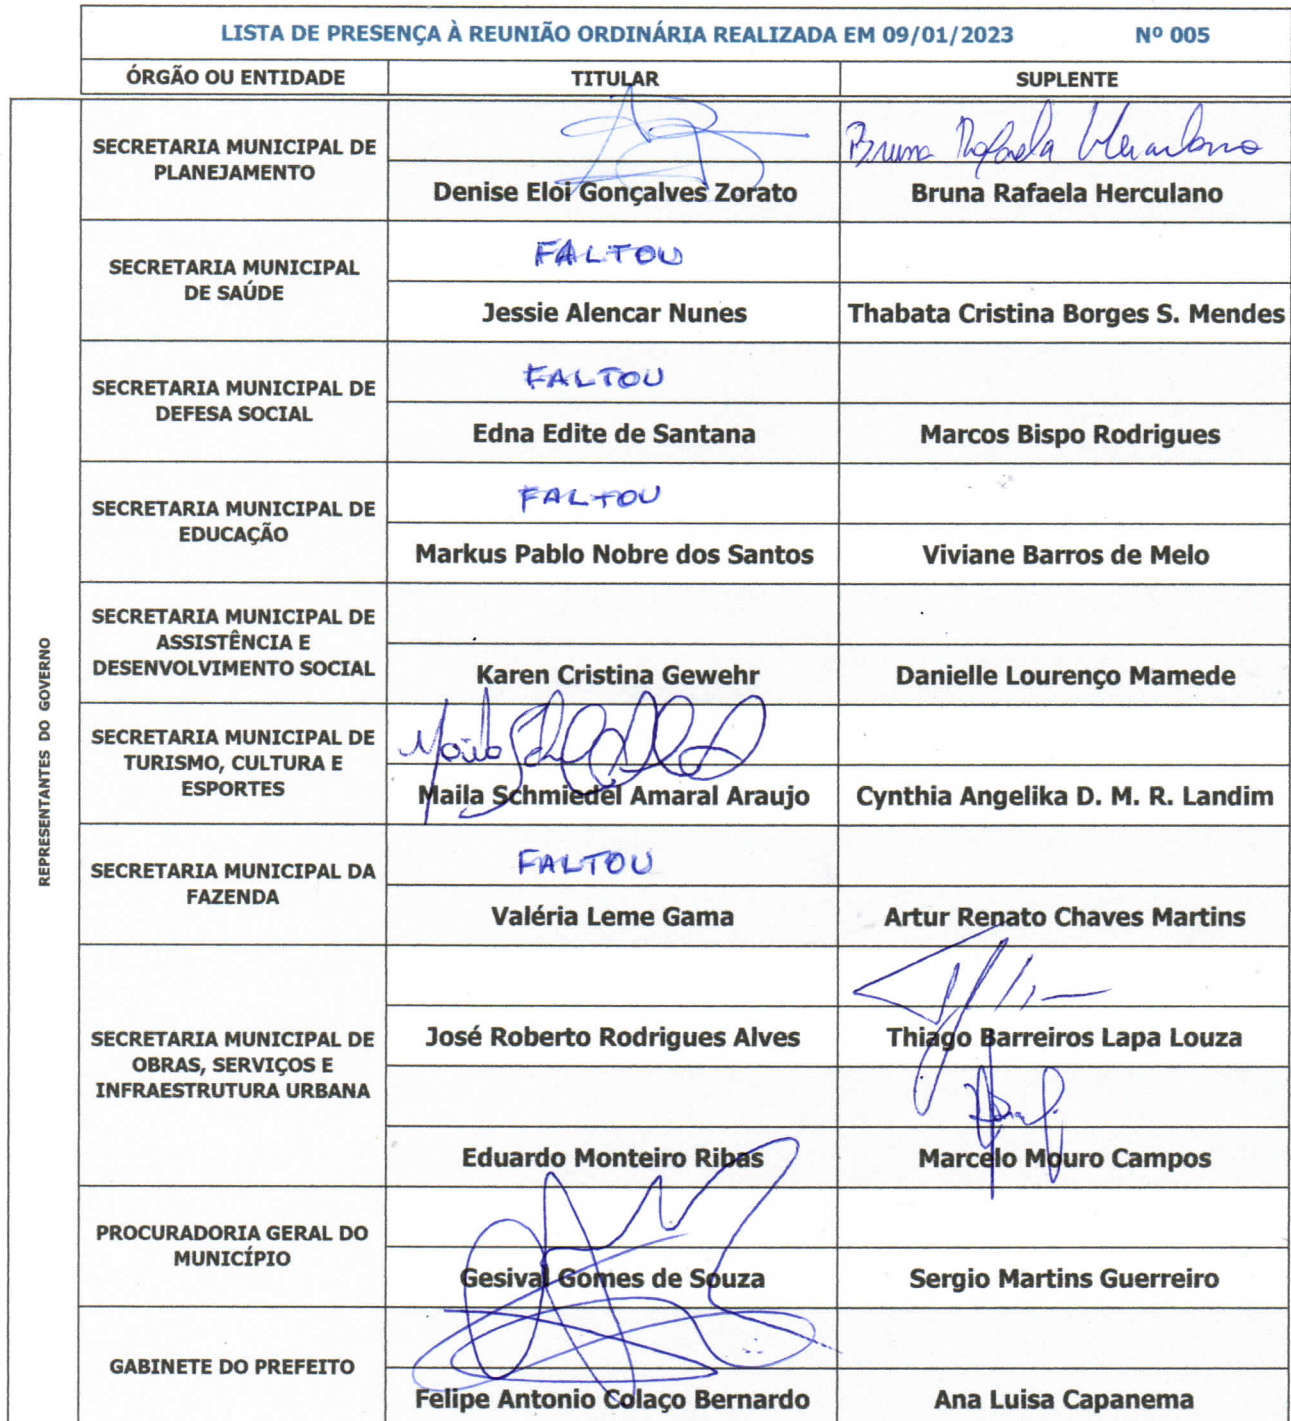 LISTA DE PRESENÇA À REUNIÃO ORDINÁRIA REALIZADA EM 09/01/2023 Nº 005
ÓRGÃO OU ENTIDADE TITULAR SUPLENTE
REPRESENTANTES DO GOVERNO
SECRETARIA MUNICIPAL DE
PLANEJAMENTO
Bruna Rafaela Herculano
Denise Eloi Gonçalves Zorato Bruna Rafaela Herculano
SECRETARIA MUNICIPAL
DE SAÚDE
FALTOU
Jessie Alencar Nunes Thabata Cristina Borges S. Mendes
SECRETARIA MUNICIPAL DE
DEFESA SOCIAL
FALTOU
Edna Edite de Santana Marcos Bispo Rodrigues
SECRETARIA MUNICIPAL DE
EDUCAÇÃO
FALTOU
Markus Pablo Nobre dos Santos Viviane Barros de Melo
SECRETARIA MUNICIPAL DE
ASSISTÊNCIA E
DESENVOLVIMENTO SOCIAL
Karen Cristina Gewehr Danielle Lourenço Mamede
SECRETARIA MUNICIPAL DE
TURISMO, CULTURA E
ESPORTES
Maila
Maila Schmiedel Amaral Araujo Cynthia Angelika D. M. R. Landim
SECRETARIA MUNICIPAL DA
FAZENDA
FALTOU
Valéria Leme Gama Artur Renato Chaves Martins
SECRETARIA MUNICIPAL DE
OBRAS, SERVIÇOS E
INFRAESTRUTURA URBANA
José Roberto Rodrigues Alves Thiago Barreiros Lapa Louza
Eduardo Monteiro Ribas Marcelo Mouro Campos
PROCURADORIA GERAL DO
MUNICÍPIO
Gesival Gomes de Souza Sergio Martins Guerreiro
GABINETE DO PREFEITO
Felipe Antonio Colaço Bernardo Ana Luisa Capanema